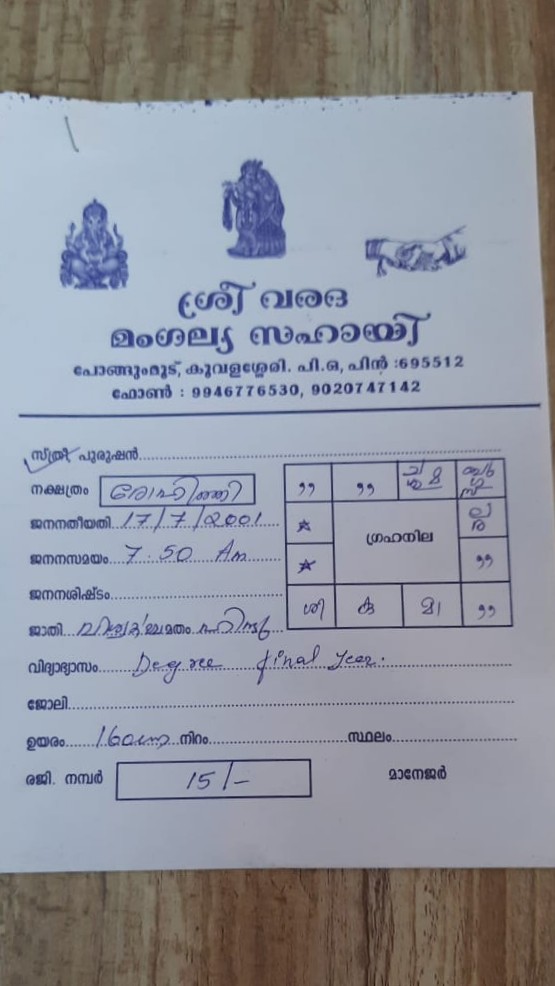 ശ്രീ വരദ
മംഗല്യ സഹായി
പോങ്ങുംമൂട്, കൂവളശ്ശേരി. പി.ഒ, പിൻ :695512
ഫോൺ : 9946776530, 9020747142
സ്ത്രീ പുരുഷൻ
നക്ഷത്രം രോഹിണി
ജനനതീയതി 17/7/2001
ജനനസമയം 7.50 Am
ജനനശിഷ്ടം
ജാതി മതം ഹിന്ദു
ഗ്രഹനില
വിദ്യാഭ്യാസം Degree final year.
ജോലി
ഉയരം 160cm നിറം സ്ഥലം
രജി. നമ്പർ 15/- മാനേജർ